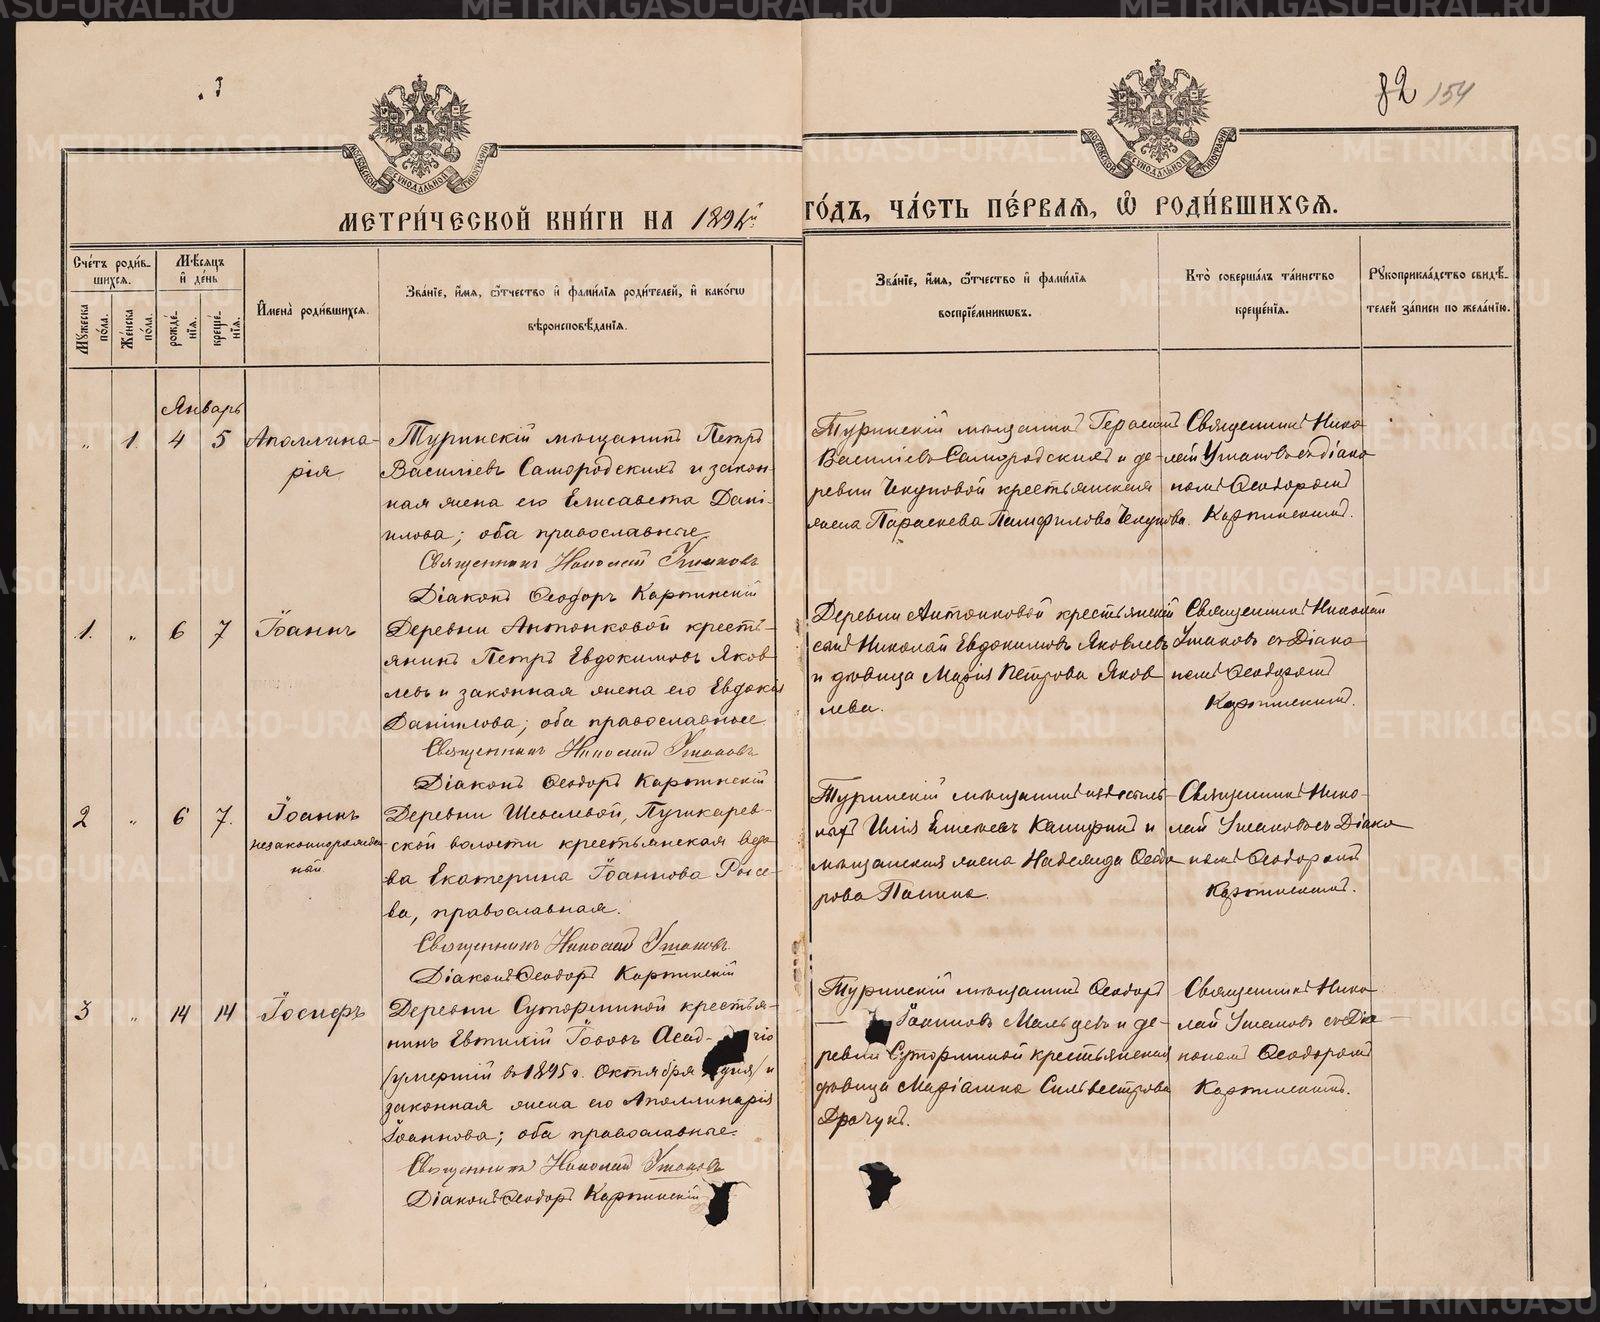 82 154
МОСКОВСКОЙ СѴНОДАЛЬНОЙ ТИПОГРАФІИ
МОСКОВСКОЙ СѴНОДАЛЬНОЙ ТИПОГРАФІИ
МЕТРИ́ЧЕСКОЙ КНИ́ГИ НА 189 й ГО́ДЪ, ЧА́СТЬ ПЕ́РВАЯ, Ѿ РОДИ́ВШИХСЯ.
Сче́тъ роди́в-
шихся.
Мѣ́сяцъ
и҆ де́нь
Мꙋ́жеска по́ла.
Же́нска по́ла.
рожде́-нїѧ.
креще́-нїѧ.
И҆мена̀ роди́вшихся.
Зва́нїе, и҆́мя, ѻ҆́тчество и҆ фами́лїя роди́телей, и҆ како́гѡ
вѣроисповѣ́данїя.
Зва́нїе, и҆́мя, ѻ҆́тчество и҆ фами́лїя
воспрїе́мникѡвъ.
Кто̀ соверша́лъ та́инство
креще́нїя.
Рꙋкоприкла́дство свидѣ́-
телей за́писи по жела́нїю.
Январь
" 1. 4 5 Аполлина-
рія
Туринскій мѣщанинъ Петръ
Василіевъ Самородскихъ и закон-
ная жена его Елисавета Дані-
илова; оба православные.
Священникъ Николай Ушаковъ
Діаконъ Ѳеодоръ Карпинскій
Туринскій мѣщанинъ Герасимъ
Василіевъ Самородскихъ и де-
ревни Чекуновой крестьянская
жена Параскева Памфилова Чекунова.
Священникъ Нико-
лай Ушаковъ съ Діако-
номъ Ѳеодоромъ
Карпинскимъ.
1. " 6 7 Іоаннъ
Деревни Антонковой кресть-
янинъ Петръ Евдокимовъ Яков-
левъ и законная жена его Евдокія
Даніилова; оба православные
Священникъ Николай Ушаковъ
Діаконъ Ѳеодоръ Карпинскій
Деревни Антонковой крестьянскій
сынъ Николай Евдокимовъ Яковлевъ
и дѣвица Марія Петрова Яков-
лева.
Священникъ Николай
Ушаковъ съ Діако-
номъ Ѳеодоромъ
Карпинскимъ.
2 " 6 7. Іоаннъ
незаконнорожден-
ный.
Деревни Шевелевой, Пушкарев-
ской волости крестьянская вдо-
ва Екатерина Іоаннова
ва, православная.
Священникъ Николай Ушаковъ
Діаконъ Ѳеодоръ Карпинскій
Туринскій мѣщанинъ
Илія и
мѣщанская жена Надежда Ѳеодо-
рова Панина.
Священникъ Нико-
лай Ушаковъ съ Діако-
номъ Ѳеодоромъ
Карпинскимъ.
3 " 14 14 Іосифъ
Деревни Суторминой крестья-
нинъ Евтихій Іововъ
/умершій въ 1895 г. Октября дня/ и
законная жена его Аполлинарія
Іоаннова; оба православные.
Священникъ Николай Ушаковъ
Діаконъ Ѳеодоръ Карпинскій
Туринскій мѣщанинъ Ѳеодоръ
Іоанновъ Мальцевъ и де-
ревни Суторминой крестьянская
дѣвица Маріамна Сильвестрова
Драчукъ.
Священникъ Нико-
лай Ушаковъ съ Діа-
кономъ Ѳеодоромъ
Карпинскимъ.
METRIKI.GASO-URAL.RU